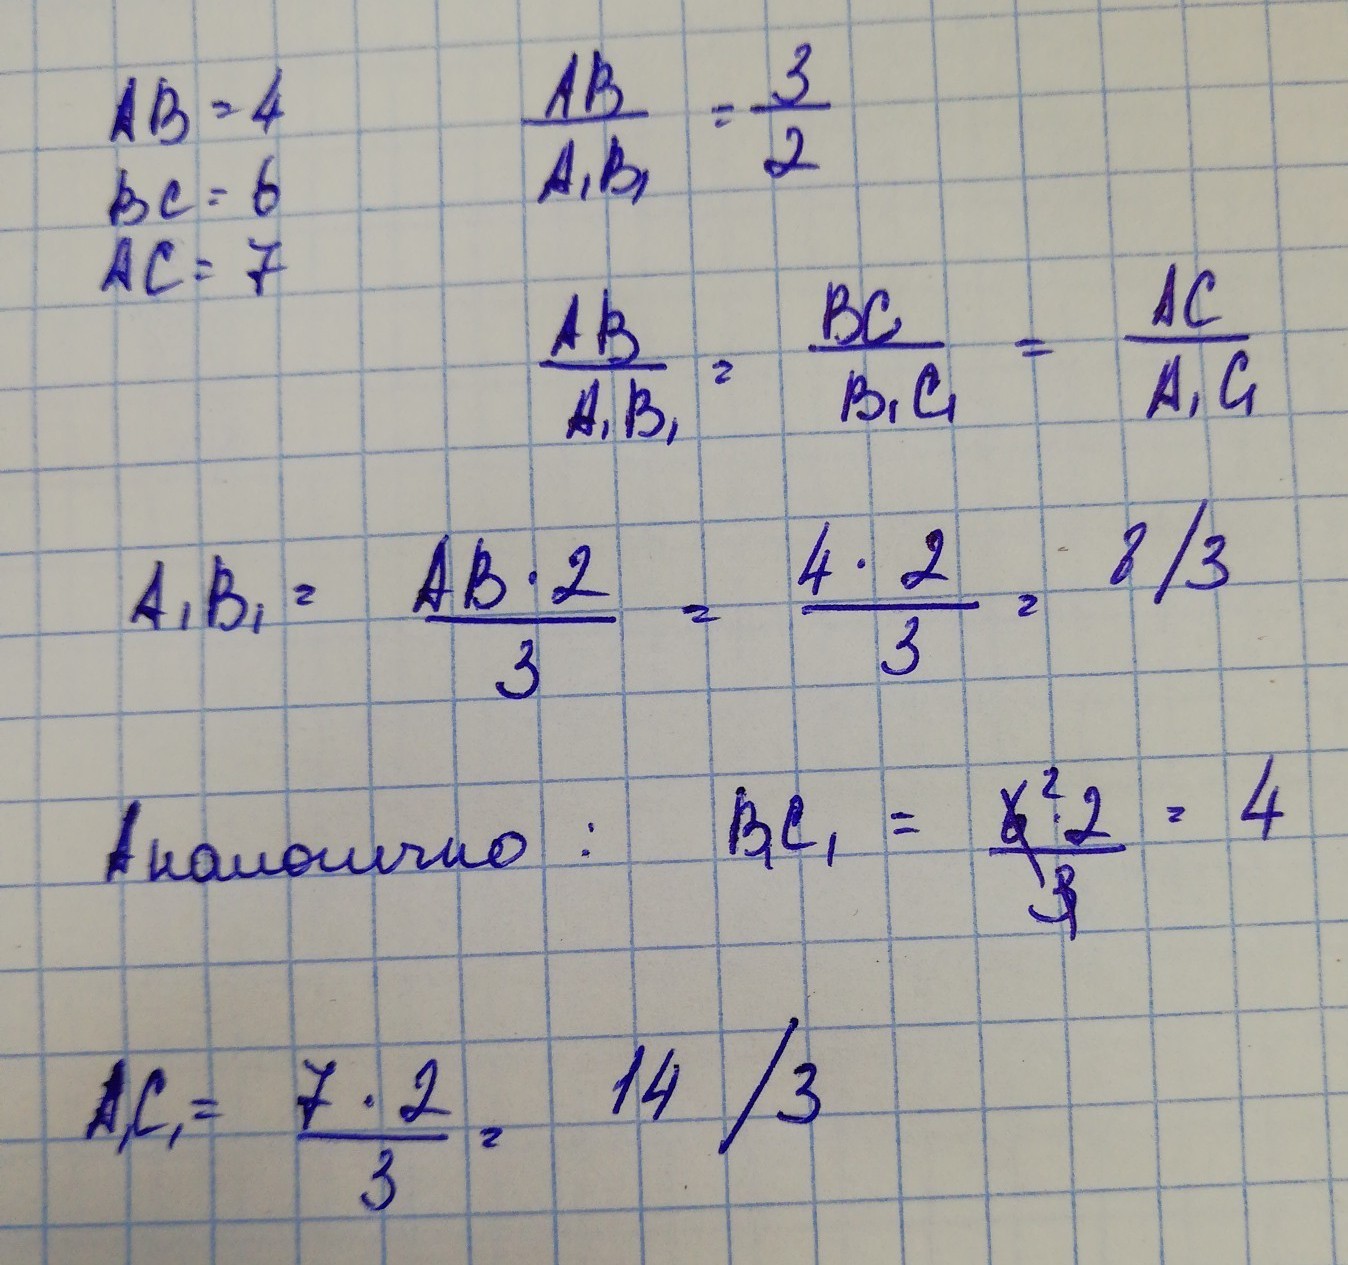 AB = 4
BC = 6
AC = 7
AB / A₁B₁ = 3 / 2
AB / A₁B₁ = BC / B₁C₁ = AC / A₁C₁
A₁B₁ = AB · 2 / 3 = 4 · 2 / 3 = 8/3
Аналогично : B₁C₁ = 6² · 2 / 3 = 4
A₁C₁ = 7 · 2 / 3 = 14/3